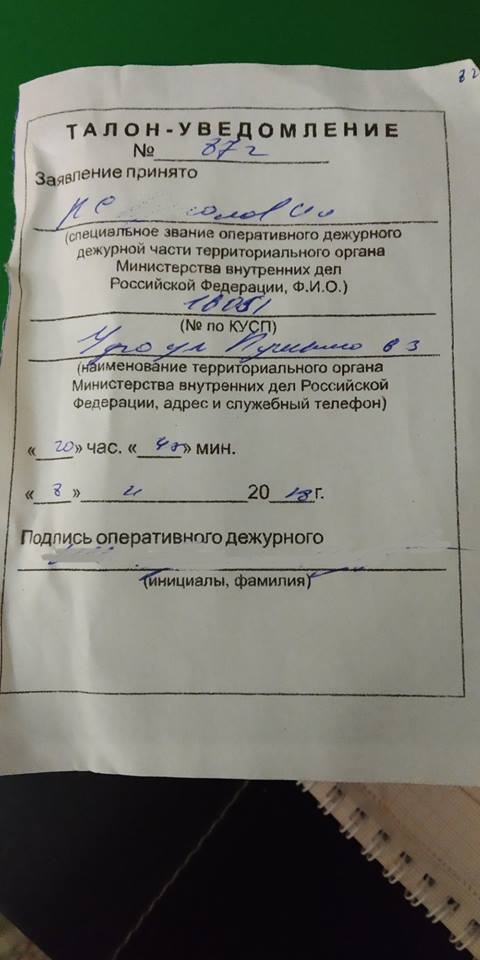 ТАЛОН-УВЕДОМЛЕНИЕ
№ 872
Заявление принято
(специальное звание оперативного дежурного
дежурной части территориального органа
Министерства внутренних дел
Российской Федерации, Ф.И.О.)
(№ по КУСП)
ул
(наименование территориального органа
Министерства внутренних дел Российской
Федерации, адрес и служебный телефон)
«20» час. « » мин.
«8» 2018г.
Подпись оперативного дежурного
(инициалы, фамилия)